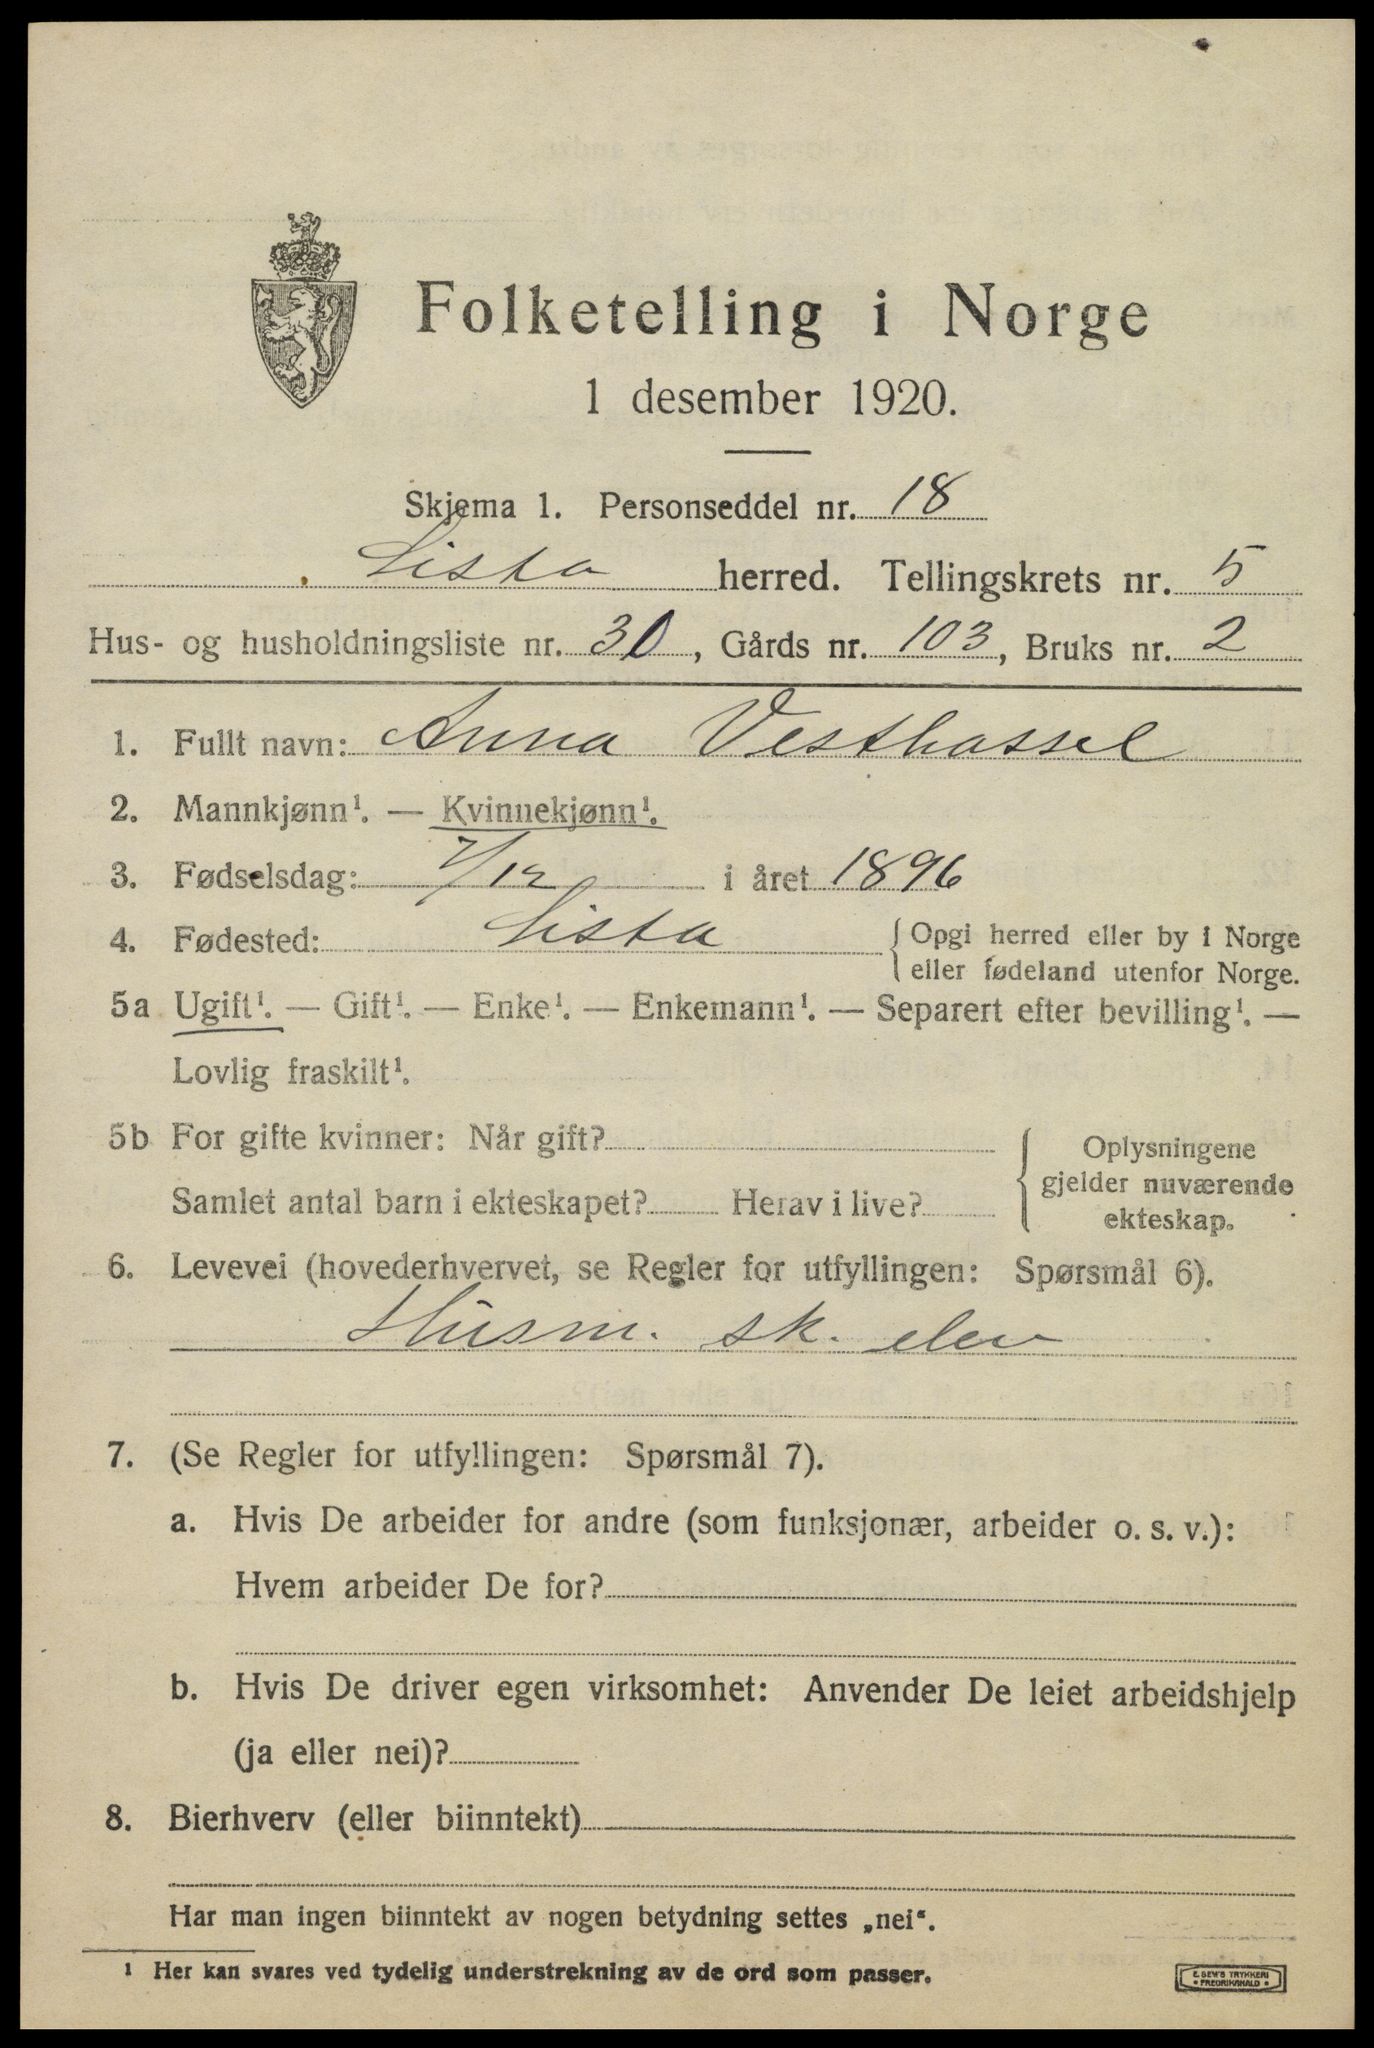 Folketelling i Norge
1 desember 1920.
Skjema 1. Personseddel nr. 18
Lista herred. Tellingskrets nr. 5
Hus- og husholdningsliste nr. 30, Gårds nr. 103, Bruks nr. 2
1. Fullt navn: Anna Vesthassel
2. Mannkjønn¹. — Kvinnekjønn¹.
3. Fødselsdag: 7/12 i året 1896
4. Fødested: Lista { Opgi herred eller by i Norge
eller fødeland utenfor Norge.
5a Ugift¹. — Gift¹. — Enke¹. — Enkemann¹. — Separert efter bevilling¹. —
Lovlig fraskilt¹.
5b For gifte kvinner: Når gift?
Samlet antal barn i ekteskapet? Herav i live?
Oplysningene
gjelder nuværende
ekteskap.
6. Levevei (hovederhvervet, se Regler for utfyllingen: Spørsmål 6).
Husm. sk. elev
7. (Se Regler for utfyllingen: Spørsmål 7).
a. Hvis De arbeider for andre (som funksjonær, arbeider o. s. v.):
Hvem arbeider De for?
b. Hvis De driver egen virksomhet: Anvender De leiet arbeidshjelp
(ja eller nei)?
8. Bierhverv (eller biinntekt)
Har man ingen biinntekt av nogen betydning settes „nei“.
¹ Her kan svares ved tydelig understrekning av de ord som passer.
E. SEM'S TRYKKERI
• FREDRIKSHALD •